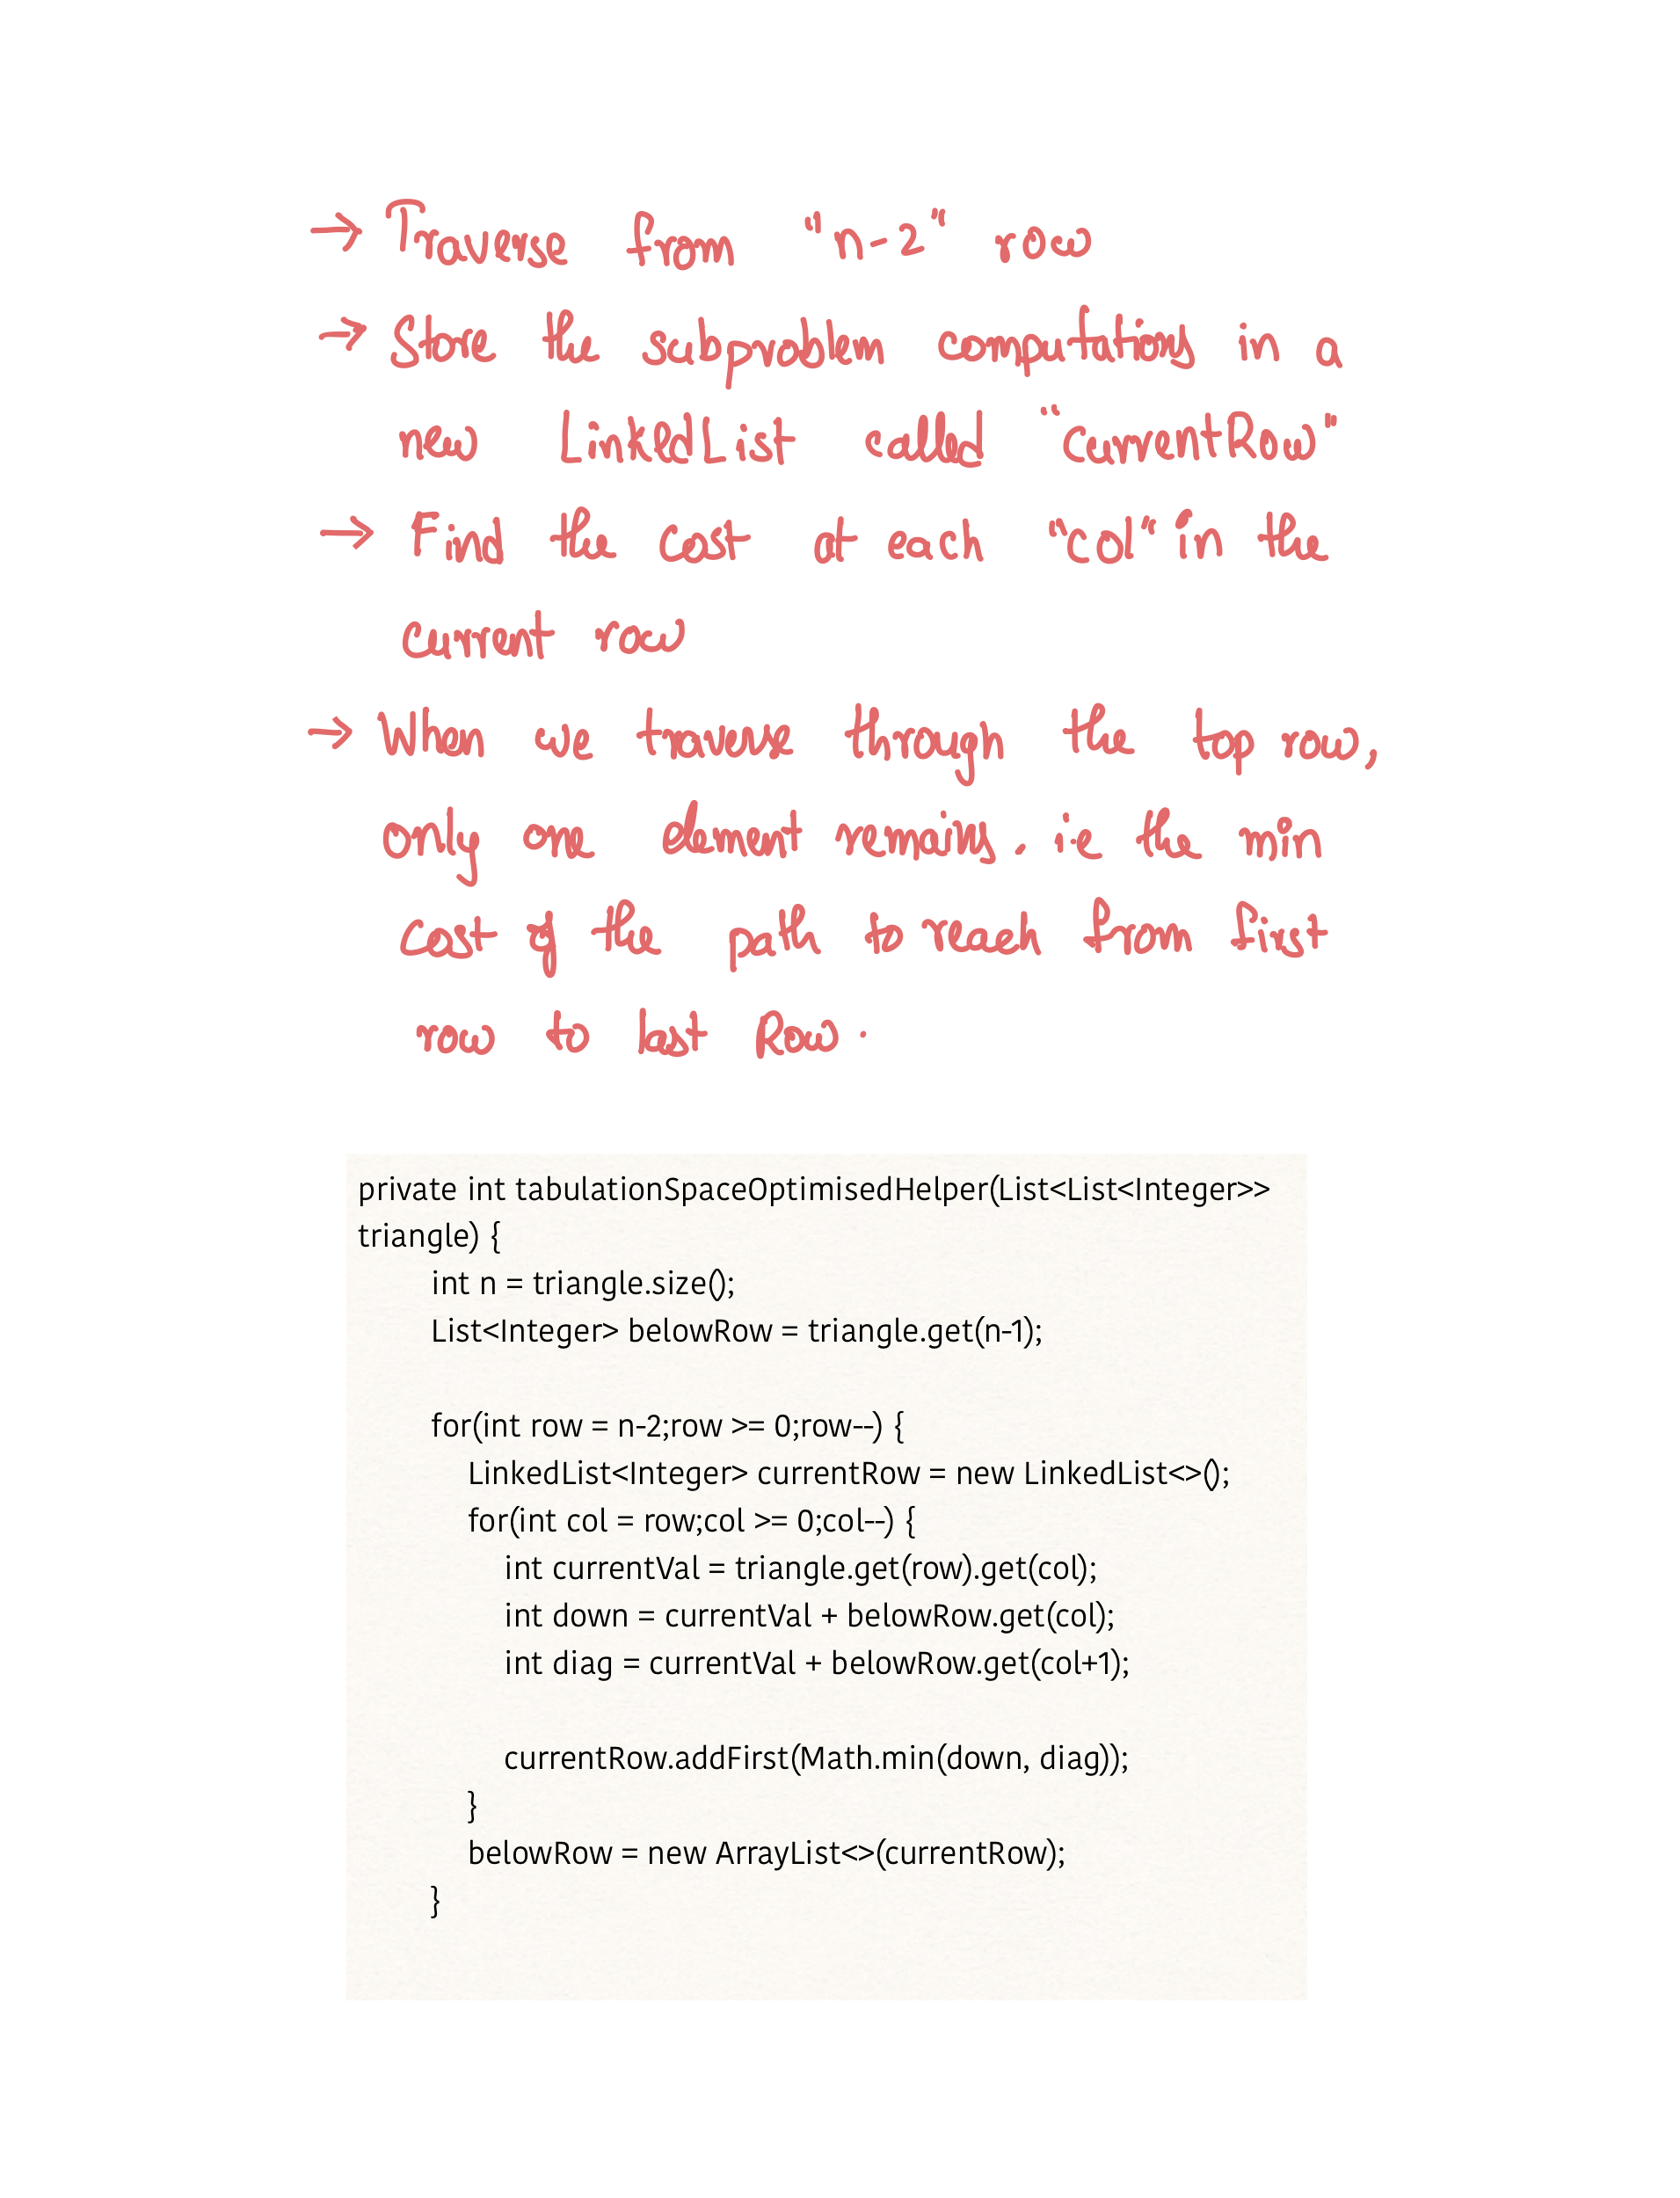 → Traverse from "n-2" row
→ Store the subproblem computations in a
new LinkedList called "currentRow"
→ Find the cost at each "col" in the
current row
→ When we traverse through the top row,
only one element remains. i.e the min
cost of the path to reach from first
row to last Row.
private int tabulationSpaceOptimisedHelper(List<List<Integer>>
triangle) {
int n = triangle.size();
List<Integer> belowRow = triangle.get(n-1);
for(int row = n-2;row >= 0;row--) {
LinkedList<Integer> currentRow = new LinkedList<>();
for(int col = row;col >= 0;col--) {
int currentVal = triangle.get(row).get(col);
int down = currentVal + belowRow.get(col);
int diag = currentVal + belowRow.get(col+1);
currentRow.addFirst(Math.min(down, diag));
}
belowRow = new ArrayList<>(currentRow);
}